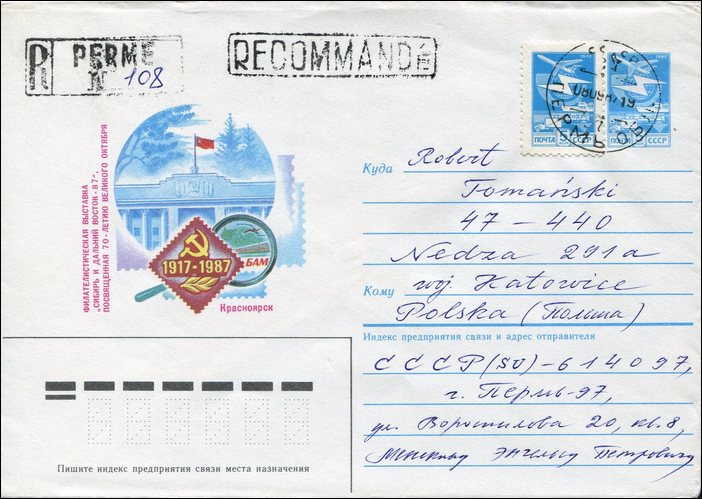 R PERME
N 108
RECOMMANDÉ
ПОЧТА СССР
ФИЛАТЕЛИСТИЧЕСКАЯ ВЫСТАВКА
"СИБИРЬ И ДАЛЬНИЙ ВОСТОК-87",
ПОСВЯЩЕННАЯ 70-ЛЕТИЮ ВЕЛИКОГО ОКТЯБРЯ
1917-1987
БАМ
Красноярск
Куда
Robert
Tomański
47-440
Nedza 291a
Кому
woj Katowice
Polska (Польша)
Индекс предприятия связи и адрес отправителя
СССР (SU)-614097,
г. Пермь-97,
ул. Ворошилова 20, кв. 8,
Энгельсу Петровичу
Пишите индекс предприятия связи места назначения